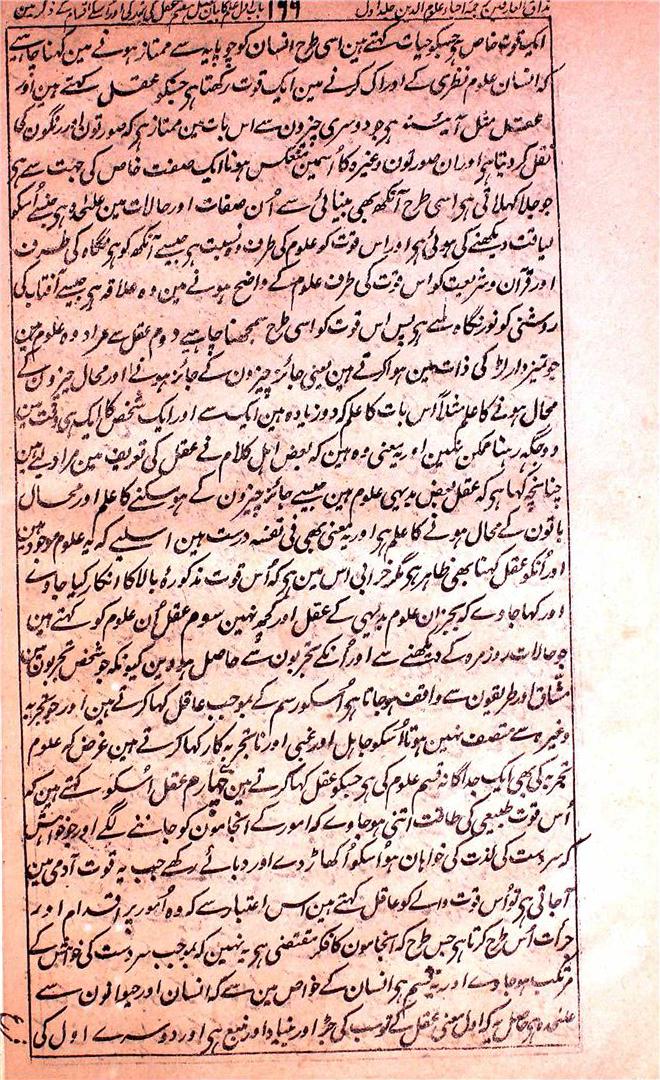 مذاق العارفین ترجمہ احیاء علوم الدین جلد اول ۱۶۶ باب اول علم کا بیان فصل ہفتم عقل کی بزرگی اور اسکے اقسام کے ذکر مین
ایک قوت خاص ہو جسکو حیات کہتے ہین اسی طرح انسان کو چوپایہ سے ممتاز ہونے مین کہنا چاہیے
کہ انسان علوم نظری کے ادراک کرنے مین ایک قوت رکھتا ہو جسکو عقل کہتے ہین اور
عقل مثل آئینہ ہو جو دوسری چیزون سے اس بات مین ممتاز ہو کہ صورتون اور رنگون کی
نقل کر دیتا ہو اور ان صورتون وغیرہ کا اُسمین منعکس ہونا ایک صفت خاص کی جہت سے ہو
جو جلا کہلاتی ہو اسی طرح آنکھ بھی پیشانی سے اُن صفات اور حالات مین علٰحدہ ہو جنسے اُسکو
لیاقت دیکھنے کی ہوئی ہو اور اس قوت کو علوم کی طرف وہ نسبت ہو جیسے آنکھ کو ہو نگاہ کی طرف
اور قرآن و شریعت کو اس قوت کی طرف علوم کے واضح ہونے مین وہ علاقہ ہو جیسے آفتاب کی
روشنی کو نور نگاہ سے ہو پس اس قوت کو اسی طرح سمجھنا چاہیے دوم عقل سے مراد وہ علوم ہین
جو تمیزدار لڑکے کی ذات مین ہوا کرتے ہین یعنی جائز چیزون کے جائز ہونے اور محال چیزون کے
محال ہونے کا علم مثلاً اس بات کا علم کہ دو زیادہ ہین ایک سے اور ایک شخص کا ایک ہی وقت مین
دو جگہ رہنا ممکن نہین اور یہ معنی وہ ہین کہ بعض اہل کلام نے عقل کی تعریف مین مراد لیے ہین
چنانچہ کہا ہو کہ عقل بعض بدیہی علوم ہین جیسے جائز چیزون کے ہو سکنے کا علم اور محال
باتون کے محال ہونے کا علم ہو اور یہ معنی بھی فی نفسہ درست ہین اسلیے کہ یہ علوم موجود ہین
اور اُنکو عقل کہنا بھی ظاہر ہو مگر خرابی اس مین ہو کہ اُس قوت مذکورۂ بالا کا انکار کیا جاوے
اور کہا جاوے کہ بجز ان علوم بدیہی کے عقل اور کچھ نہین سوم عقل اُن علوم کو کہتے ہین
جو حالات روزمرہ کے دیکھنے سے اور اُنکے تجربون سے حاصل ہووین کیونکہ جو شخص تجربون مین
مشاق اور طریقون سے واقف ہو جاتا ہو اُسکو رسم کے بموجب عاقل کہا کرتے ہین اور جو تجربہ
وغیرہ سے متصف نہین ہوتا اُسکو جاہل اور غبی اور ناتجربہ کار کہا کرتے ہین غرض کہ علوم
تجربہ کی بھی ایک جداگانہ قسم علوم کی ہو جسکو عقل کہا کرتے ہین چہارم عقل اُسکو کہتے ہین کہ
اُس قوت طبیعی کی طاقت اتنی ہو جاوے کہ امور کے انجامون کو جاننے لگے اور جو خواہش
کہ سردست کی لذت کی خواہان ہو اُسکو اُکھاڑ دے اور دبائے رکھے جب یہ قوت آدمی مین
آجاتی ہو تو اُس قوت والے کو عاقل کہتے ہین اس اعتبار سے کہ وہ اُمور پر اقدام اور
جرأت اُس طرح کرتا ہو جس طرح کہ انجامون کا فکر مقتضی ہو یہ نہین کہ بموجب سردست کی خواہش کے
مرتکب ہو جاوے اور یہ قسم ہو انسان کے خواص مین سے کہ انسان اور حیوانون سے
علٰحدہ ہو حاصل یہ کہ اول معنی عقل کے تو سب کی جڑ اور بنیاد اور منبع ہو اور دوسرے اول کی